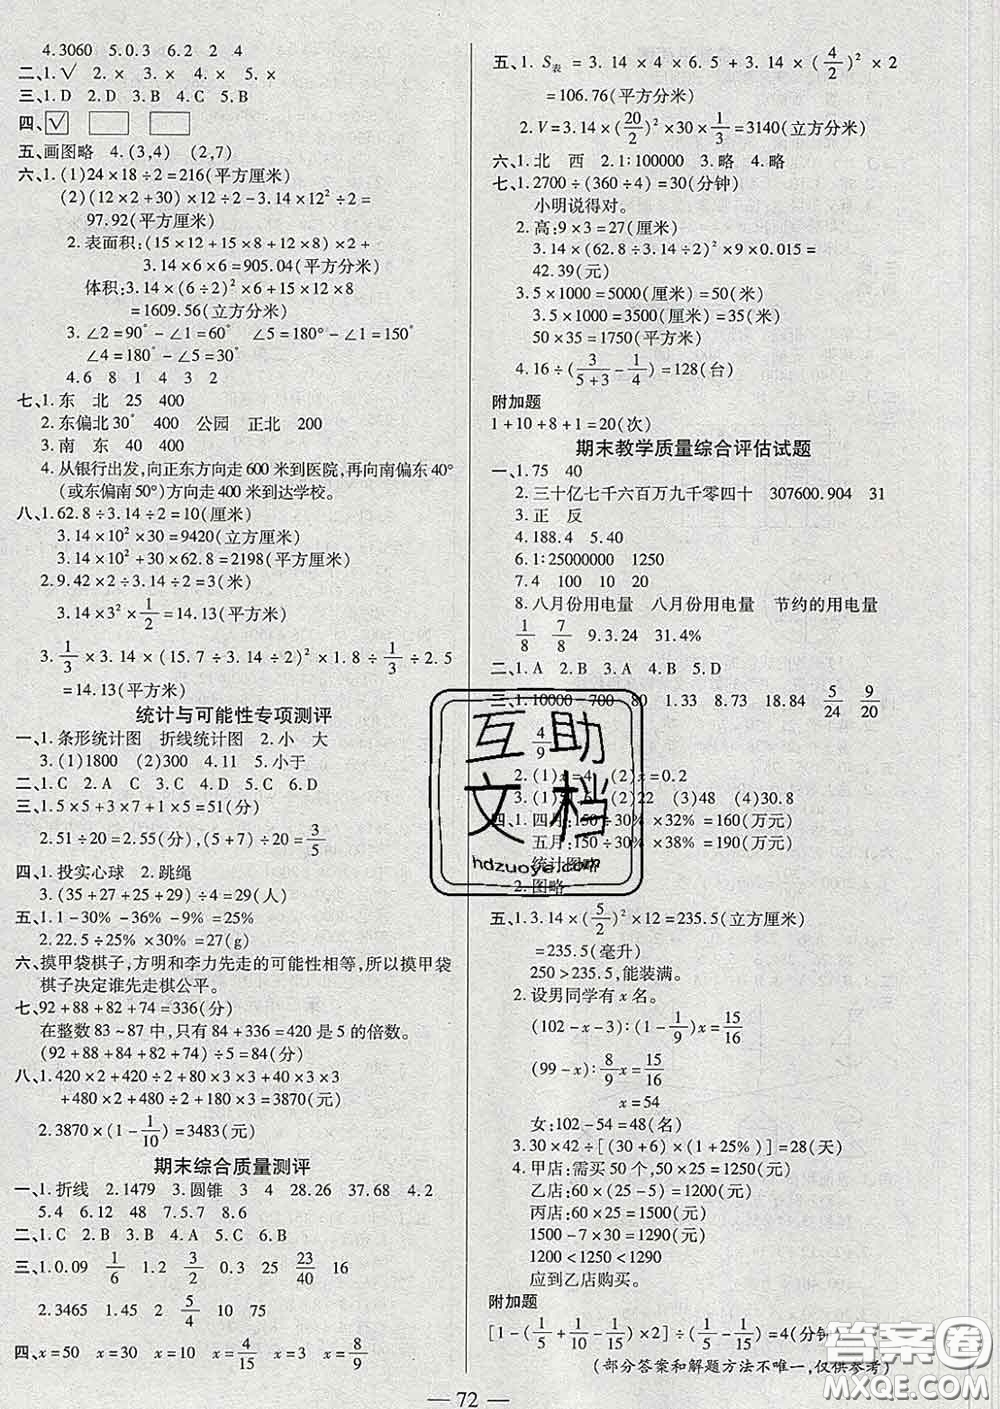 4.3060 5.0.3 6.2 2 4
二、1.√ 2.× 3.× 4.× 5.×
三、1.D 2.D 3.B 4.C 5.B
四、√
五、画图略 4.(3,4) (2,7)
六、1.(1)24×18÷2=216(平方厘米)
(2)(12×2+30)×12÷2-3.14×12²÷2=
97.92(平方厘米)
2.表面积:(15×12+15×8+12×8)×2+
3.14×6×6=905.04(平方分米)
体积:3.14×(6÷2)²×6+15×12×8
=1609.56(立方分米)
3.∠2=90°-∠1=60° ∠5=180°-∠1=150°
∠4=180°-∠5=30°
4.6 8 1 4 3 2
七、1.东 北 25 400
2.东偏北30° 400 公园 正北 200
3.南 东 40 400
4.从银行出发,向正东方向走600米到医院,再向南偏东40°
(或东偏南50°)方向走400米到达学校。
八、1.62.8÷3.14÷2=10(厘米)
3.14×10²×30=9420(立方厘米)
3.14×10²+30×62.8=2198(平方厘米)
2.9.42×2÷3.14÷2=3(米)
3.14×3²×1/2=14.13(平方米)
3.1/3×3.14×(15.7÷3.14÷2)²×1.8÷1/3÷2.5
=14.13(平方米)
统计与可能性专项测评
一、1.条形统计图 折线统计图 2.小 大
3.(1)(1800) (2)300 4.11 5.小于
二、1.C 2.A 3.C 4.C 5.C
三、1.5×5+3×7+1×5=51(分)
2.51÷20=2.55(分),(5+7)÷20=3/5
四、1.投实心球 2.跳绳
3.(35+27+25+29)÷4=29(人)
五、1.1-30%-36%-9%=25%
2.22.5÷25%×30%=27(g)
六、摸甲袋棋子,方明和李力先走的可能性相等,所以摸甲袋
棋子决定谁先走棋公平。
七、92+88+82+74=336(分)
在整数83~87中,只有84+336=420是5的倍数。
(92+88+84+82+74)÷5=84(分)
八、1.420×2+420÷2+80×6+80÷2×6+40×3×3
+480×2+480÷2+40÷2×3×3=3870(元)
2.3870×(1-1/10)=3483(元)
期末综合质量测评
一、1.折线 2.1479 3.圆锥 3 4 28.26 37.68 4.2
5.4 6.12 48 7.5.7 8.6
二、1.C 2.B 3.B 4.A 5.C
三、1.0.09 1/6 1.2 3/2 0.3 25 23/40 16
2.3465 1.45 2 5/4 10 75
四、x=50 x=30 x=10 x=4/15 x=3 x=8/9
五、1.S表=3.14×4×6.5+3.14×(4/2)²×2
=106.76(平方分米)
2.V=3.14×(20/2)²×30×1/3=3140(立方分米)
六、1.北 西 2.1:100000 3.略 4.略
七、1.2700÷(360÷4)=30(分钟)
小明说得对。
2.高:9×3=27(厘米)
3.14×(62.8÷3.14÷2)²×9×0.01=
42.39(元)
3.5×1000=5000(厘米)=50(米)
3.5×1000=3500(厘米)=35(米)
50×35=1750(平方米)
4.16÷(3/(5+3)-1/4)=128(台)
附加题
1+10+8+1=20(次)
期末教学质量综合评估试题
一、1.75 40
2.三十亿七千六百万九千零四十 307600.904 31
3.正 反
4.188.4 5.40
6.1:25000000 1250
7.4 100 10 20
8.八月份用电量 八月份用电量 节约的用电量
1/8 7/8 9.3.24 31.4%
二、1.A 2.B 3.A 4.B 5.D
三、1.10000 700 80 1.33 8.73 18.84 5/24 9/20
4/9
2.(1)x=4 (2)x=0.2
(2)22 (3)48 (4)30.8
四、1.四月:150÷30%×32%=160(万元)
五月:150÷30%×38%=190(万元)
统计图略
2.图略
五、1.3.14×(5/2)²×12=235.5(立方厘米)
=235.5(毫升)
250>235.5,能装满。
2.设男同学有x名。
(102-x-3):(1-1/9)x=15/16
(99-x):8/9x=15/16
x=54
女:102-54=48(名)
3.30×42÷[(30+6)×(1+25%)]=28(天)
4.甲店:需买50个,50×25=1250(元)
乙店:60×(25-5)=1200(元)
丙店:60×25=1500(元)
1500-7×30=1290(元)
1200<1250<1290
应到乙店购买。
附加题
[1-(1/5+1/10-1/15)×2]÷(1/5-1/15)=4(分钟)
(部分答案和解题方法不唯一,仅供参考)
— 72 —
互助
文档
hdzuoye.com
答案圈
MXQE.COM